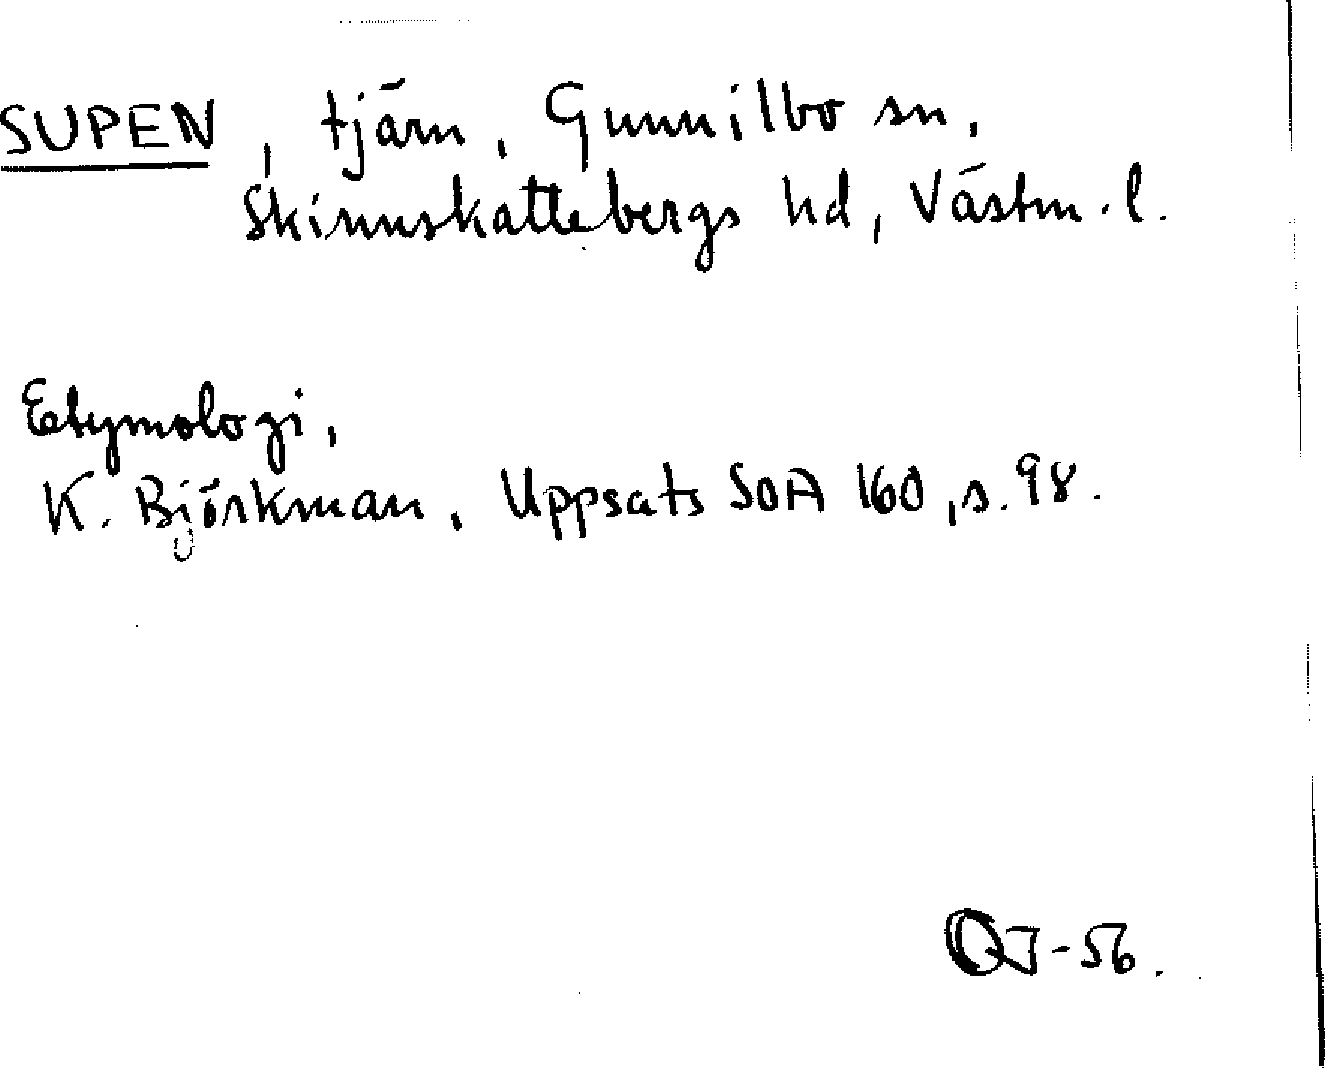 SUPEN, tjärn, Gunnilbo sn,
Skinnskattebergs hd, Västm. l.
Etymologi,
K. Björkman, Uppsats SOA 160, s. 98.
OJ-56.